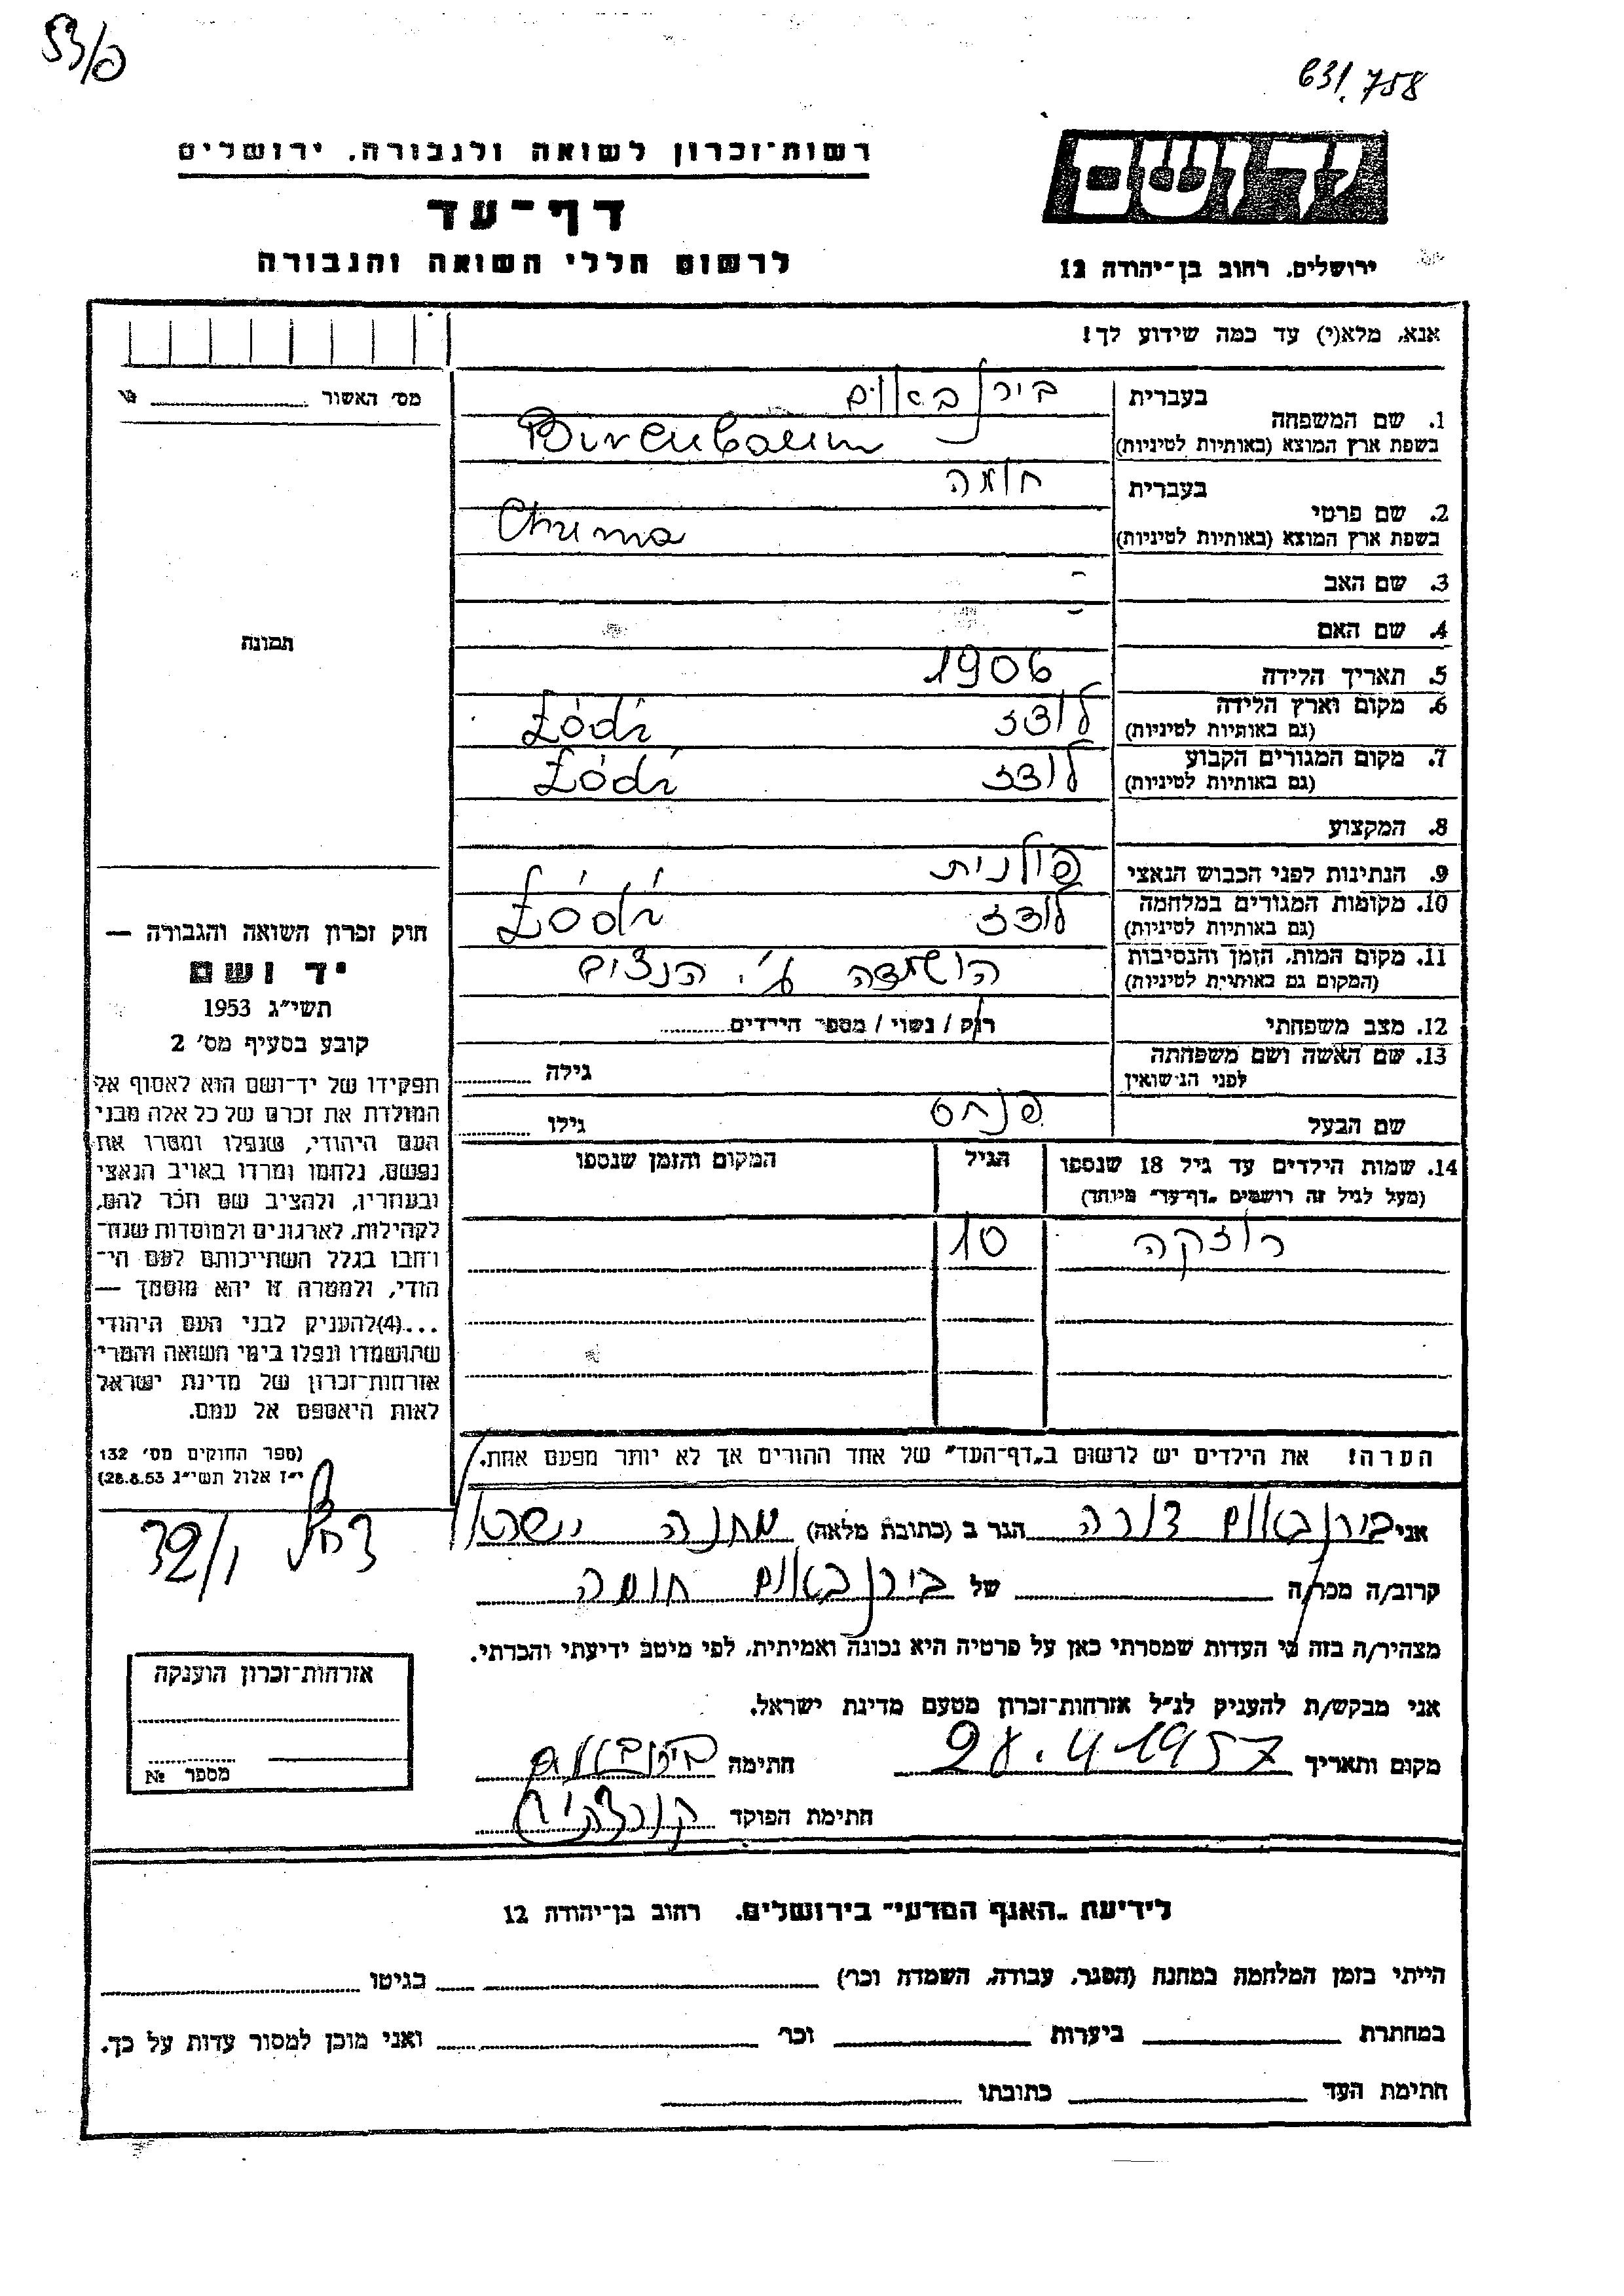 53/פ
631.758
יד ושם
ירושלים. רחוב בן־יהודה 12
רשות־זכרון לשואה ולגבורה. ירושלים
דף־עד
לרשום חללי השואה והגבורה
אנא, מלא(י) עד כמה שידוע לך!
מס׳ האשור
1. שם המשפחה
בעברית בירנבאום
בשפת ארץ המוצא (באותיות לטיניות) Birenbaum
2. שם פרטי
בעברית חומה
בשפת ארץ המוצא (באותיות לטיניות) Chuma
3. שם האב -
4. שם האם -
תמונה
5. תאריך הלידה 1906
6. מקום וארץ הלידה לודז Łódź
(גם באותיות לטיניות)
7. מקום המגורים הקבוע לודז Łódź
(גם באותיות לטיניות)
8. המקצוע
9. הנתינות לפני הכבוש הנאצי פולנית
10. מקומות המגורים במלחמה לודז Łódź
(גם באותיות לטיניות)
11. מקום המות, הזמן והנסיבות הושמדה ע״י הנצים
(המקום גם באותיות לטיניות)
12. מצב משפחתי רוק / נשוי / מספר הילדים
13. שם האשה ושם משפחתה
לפני הנישואין גילה
שם הבעל פנחס גילו
14. שמות הילדים עד גיל 18 שנספו הגיל המקום והזמן שנספו
(מעל לגיל זה רושמים „דף־עד״ מיוחד)
רוזקה 10
הערה! את הילדים יש לרשום ב„דף־העד״ של אחד ההורים אך לא יותר מפעם אחת.
חוק זכרון השואה והגבורה —
יד ושם
תשי״ג 1953
קובע בסעיף מס׳ 2
תפקידו של יד־ושם הוא לאסוף אל
המולדת את זכרם של כל אלה מבני
העם היהודי, שנפלו ומסרו את
נפשם, נלחמו ומרדו באויב הנאצי
ובעוזריו, ולהציב שם וזכר להם,
לקהילות, לארגונים ולמוסדות שנח־
רבו בגלל השתייכותם לעם הי־
הודי, ולמטרה זו יהא מוסמך —
...(4)להעניק לבני העם היהודי
שהושמדו ונפלו בימי השואה והמרי
אזרחות־זכרון של מדינת ישראל
לאות היאספם אל עמם.
(ספר החוקים מס׳ 132
י״ז אלול תשי״ג 28.8.53)
32/1
אני בירנבאום דורה הגר ב (כתובת מלאה) מחנה ישראל
קרוב/ה מכר/ה של בירנבאום חומה
מצהיר/ה בזה כי העדות שמסרתי כאן על פרטיה היא נכונה ואמיתית, לפי מיטב ידיעתי והכרתי.
אני מבקש/ת להעניק לנ״ל אזרחות־זכרון מטעם מדינת ישראל.
מקום ותאריך 28.4 1957 חתימה בירנבאום
חתימת הפוקד
אזרחות־זכרון הוענקה
מספר №
לידיעת „האגף המדעי״ בירושלים. רחוב בן־יהודה 12
הייתי בזמן המלחמה במחנה (הסגר, עבודה, השמדה וכר׳) בגיטו
במחתרת ביערות וכר׳ ואני מוכן למסור עדות על כך.
חתימת העד כתובתו